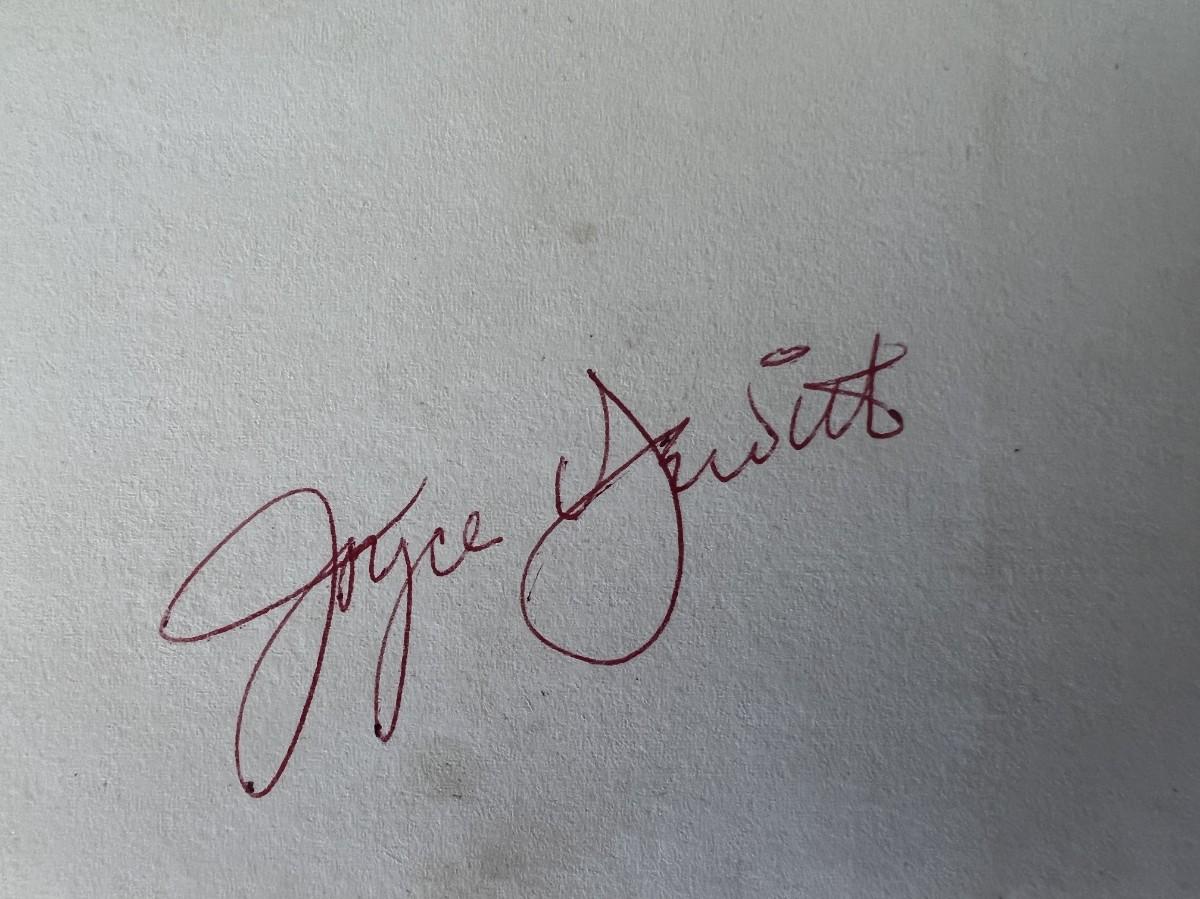 Joyce Dewitt